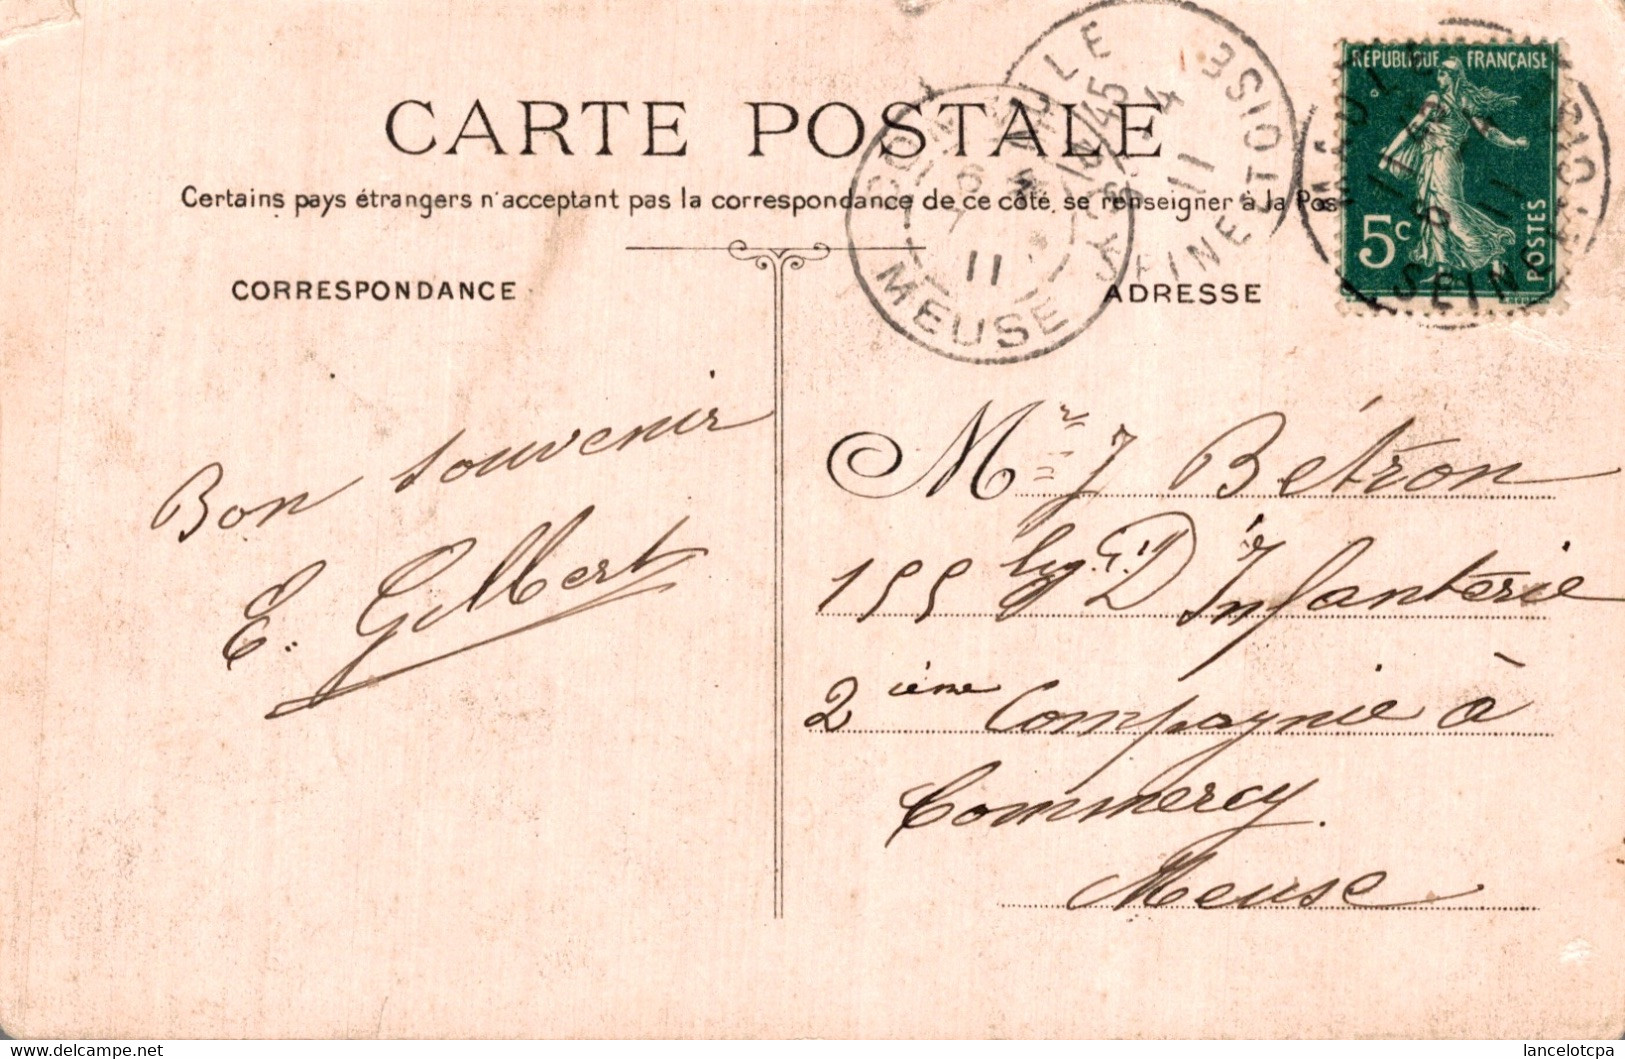 CARTE POSTALE
Certains pays étrangers n'acceptent pas la correspondance de ce côté, se renseigner à la Pos
CORRESPONDANCE
ADRESSE
REPUBLIQUE FRANÇAISE
5c
POSTES
MEUSE
11
14/45
4
11
SEINE-ET-OISE
SEINE
Bon souvenir
E. Gilbert
Mr J Bétron
155 D'Infanterie
2ième Compagnie à
Commercy.
Meuse
www.delcampe.net
lancelotcpa